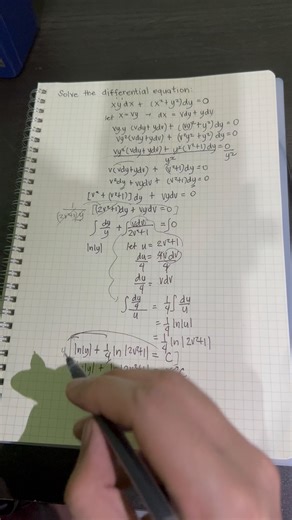 Solve the differential equation:
xy dx + (x²+y²)dy = 0
let x = vy → dx = vdy + ydv
vy·y (vdy + ydv) + ((vy)²+y²)dy = 0
vy²(vdy+ydv) + (v²y²+y²)dy = 0
vy²(vdy+ydv) + y²(v²+1)dy = 0
y² y²
v(vdy+ydv) + (v²+1)dy = 0
v²dy + vydv + (v²+1)dy = 0
[v² + (v²+1)]dy + vydv = 0
1/(2v²+1)(y) [(2v²+1)dy + vydv = 0]
∫ dy/y + ∫ vdv/2v²+1 = ∫0
ln|y| let u = 2v²+1
du/4 = 4vdv/4
du/4 = vdv
∫ du/4 / u = 1/4 ∫ du/u
= 1/4 ln|u|
= 1/4 ln|2v²+1|
ln|y| + 1/4 ln|2v²+1| = C ]